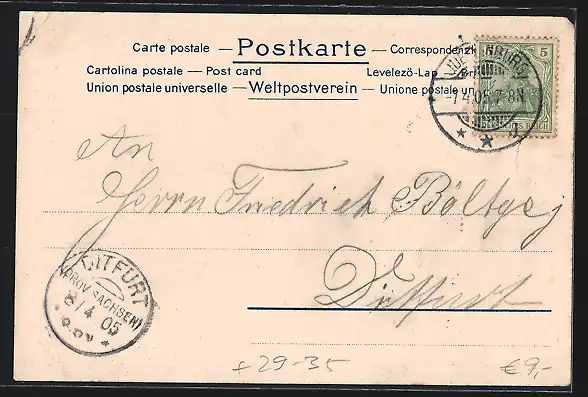 Carte postale — Postkarte — Correspondenzk
Cartolina postale — Post card Levelező-Lap
Union postale universelle — Weltpostverein — Unione postale un
5
-7 4 05 7-8N
DEUTSCHES REICH
An
Herrn Friedrich
Ditfurt
DITFURT
(PROV. SACHSEN)
8/4 05
29-35
€9,-